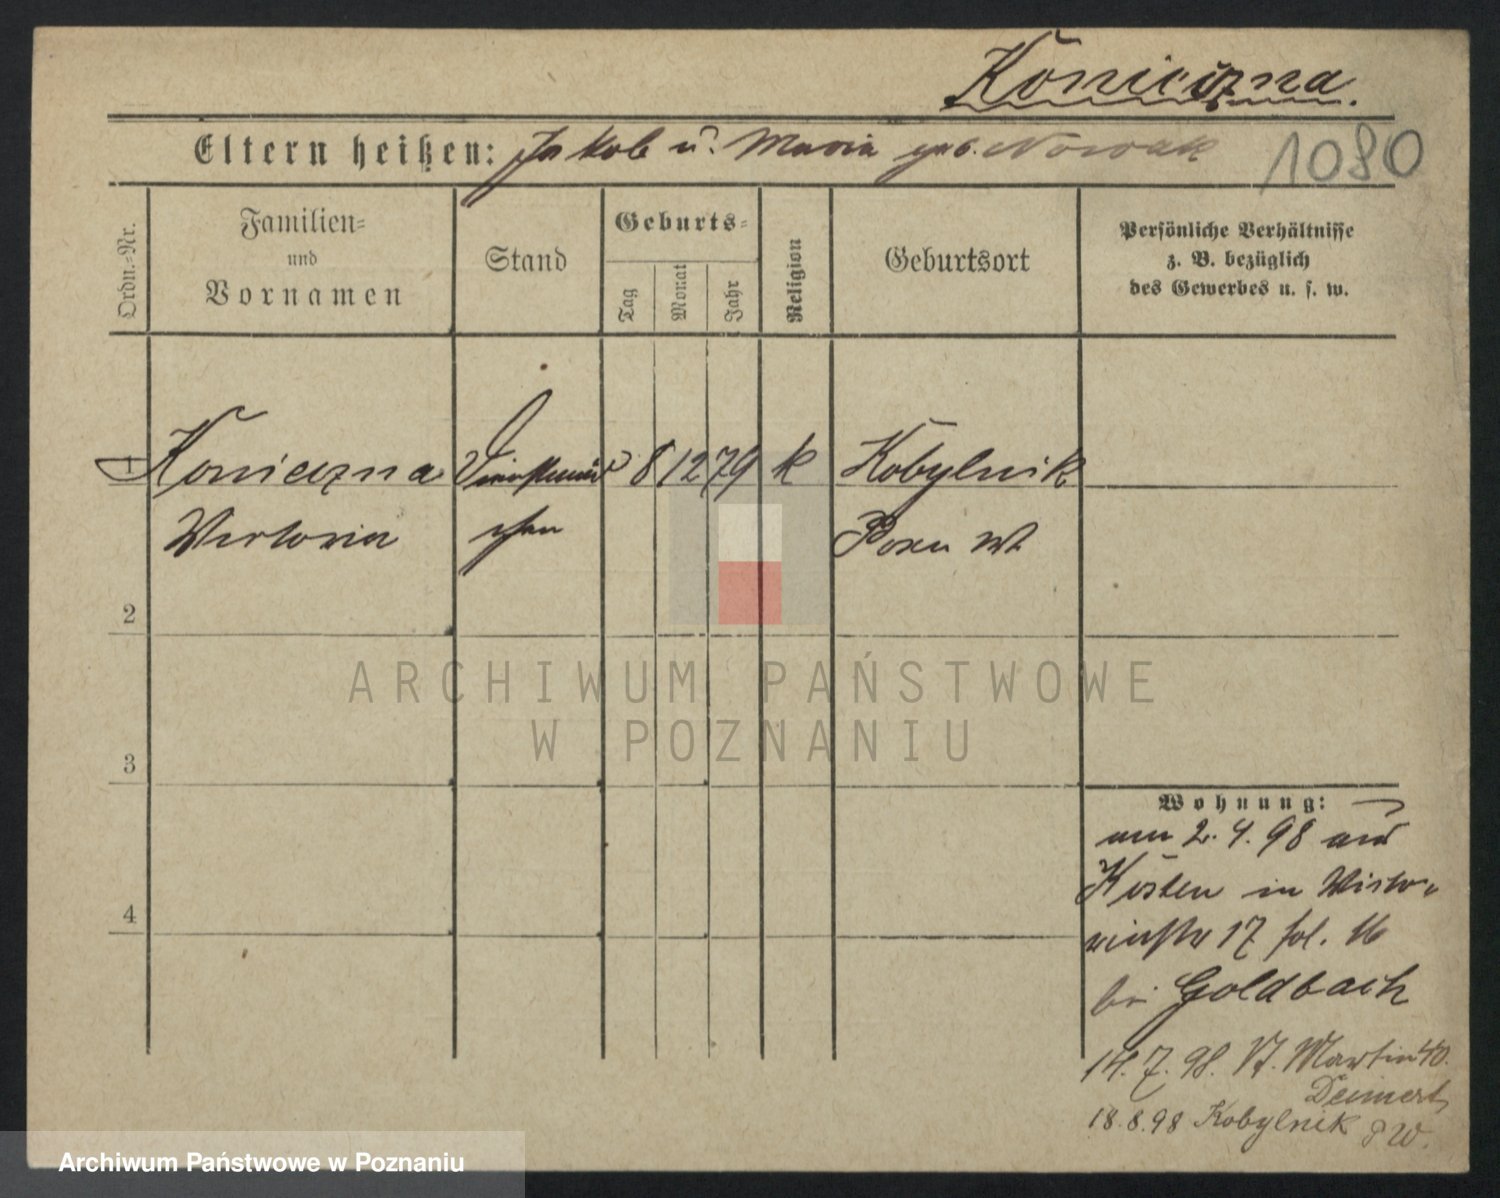 Konieczna.
Eltern heißen: Jakob u. Maria geb. Nowak
1080
Ordn.-Nr.
Familien-
und
Vornamen
Stand
Geburts-
Tag
Monat
Jahr
Religion
Geburtsort
Persönliche Verhältnisse
z. B. bezüglich
des Gewerbes u. s. w.
1 Konieczna Dienstmäd 8 12 79 k Kobylnik
Victoria chen Posen W
2
ARCHIWUM PAŃSTWOWE
W POZNANIU
3
Wohnung:
am 2. 4. 98 aus
Kosten in Victo-
riastr 17 fol. 16
bei Goldbach
14. 7. 98. St. Martin 40.
Deimert
18. 8. 98 Kobylnik
P W.
4
Archiwum Państwowe w Poznaniu